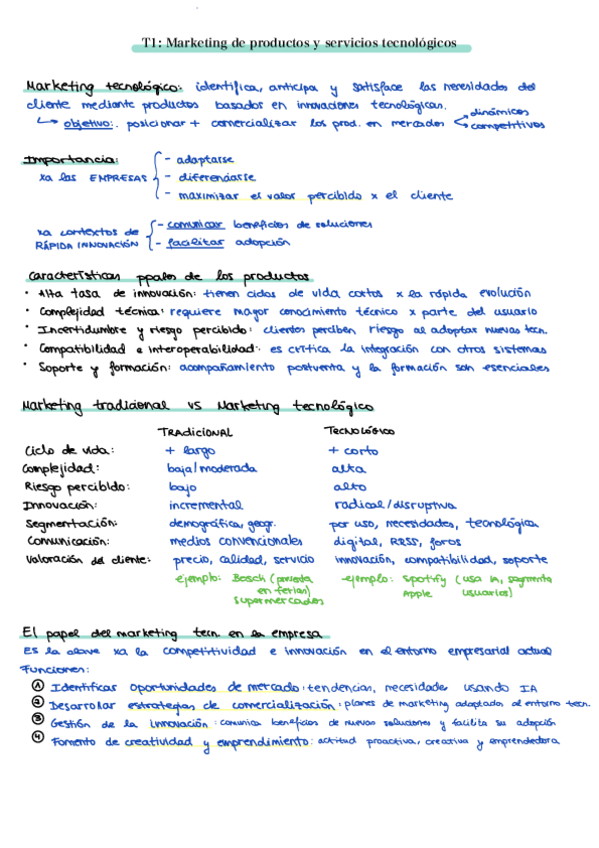 T1: Marketing de productos y servicios tecnológicos
Marketing tecnológico: identifica, anticipa y satisface las necesidades del
cliente mediante productos basados en innovaciones tecnológicas.
↳ objetivo: posicionar + comercializar los prod. en mercados < dinámicos
competitivos
Importancia:
xa las EMPRESAS
- adaptarse
- diferenciarse
- maximizar el valor percibido x el cliente
xa contextos de
RÁPIDA INNOVACIÓN
- comunicar beneficios de soluciones
- facilitar adopción
Características ppales de los productos
· Alta tasa de innovación: tienen ciclos de vida cortos x la rápida evolución
· Complejidad técnica: requiere mayor conocimiento técnico x parte del usuario
· Incertidumbre y riesgo percibido: clientes perciben riesgo al adoptar nuevas tecn.
· Compatibilidad e interoperabilidad: es crítica la integración con otros sistemas
· Soporte y formación: acompañamiento postventa y la formación son esenciales
Marketing tradicional vs Marketing tecnológico
TRADICIONAL TECNOLÓGICO
Ciclo de vida: + largo + corto
Complejidad: baja/moderada alta
Riesgo percibido: bajo alto
Innovación: incremental radical/disruptiva
Segmentación: demográfica, geogr. por uso, necesidades, tecnológica
Comunicación: medios convencionales digital, RRSS, foros
Valoración del cliente: precio, calidad, servicio innovación, compatibilidad, soporte
ejemplo: Bosch (presenta -ejemplo: Spotify (usa IA, segmenta
en ferias) Apple usuarios)
supermercados
El papel del marketing tecn. en la empresa
Es la clave xa la competitividad e innovación en el entorno empresarial actual
Funciones:
① Identificar oportunidades de mercado: tendencias, necesidades usando IA
② Desarrollar estrategias de comercialización: planes de marketing adaptados al entorno tecn.
③ Gestión de la innovación: comunica beneficios de nuevas soluciones y facilita su adopción
④ Fomento de creatividad y emprendimiento: actitud proactiva, creativa y emprendedora